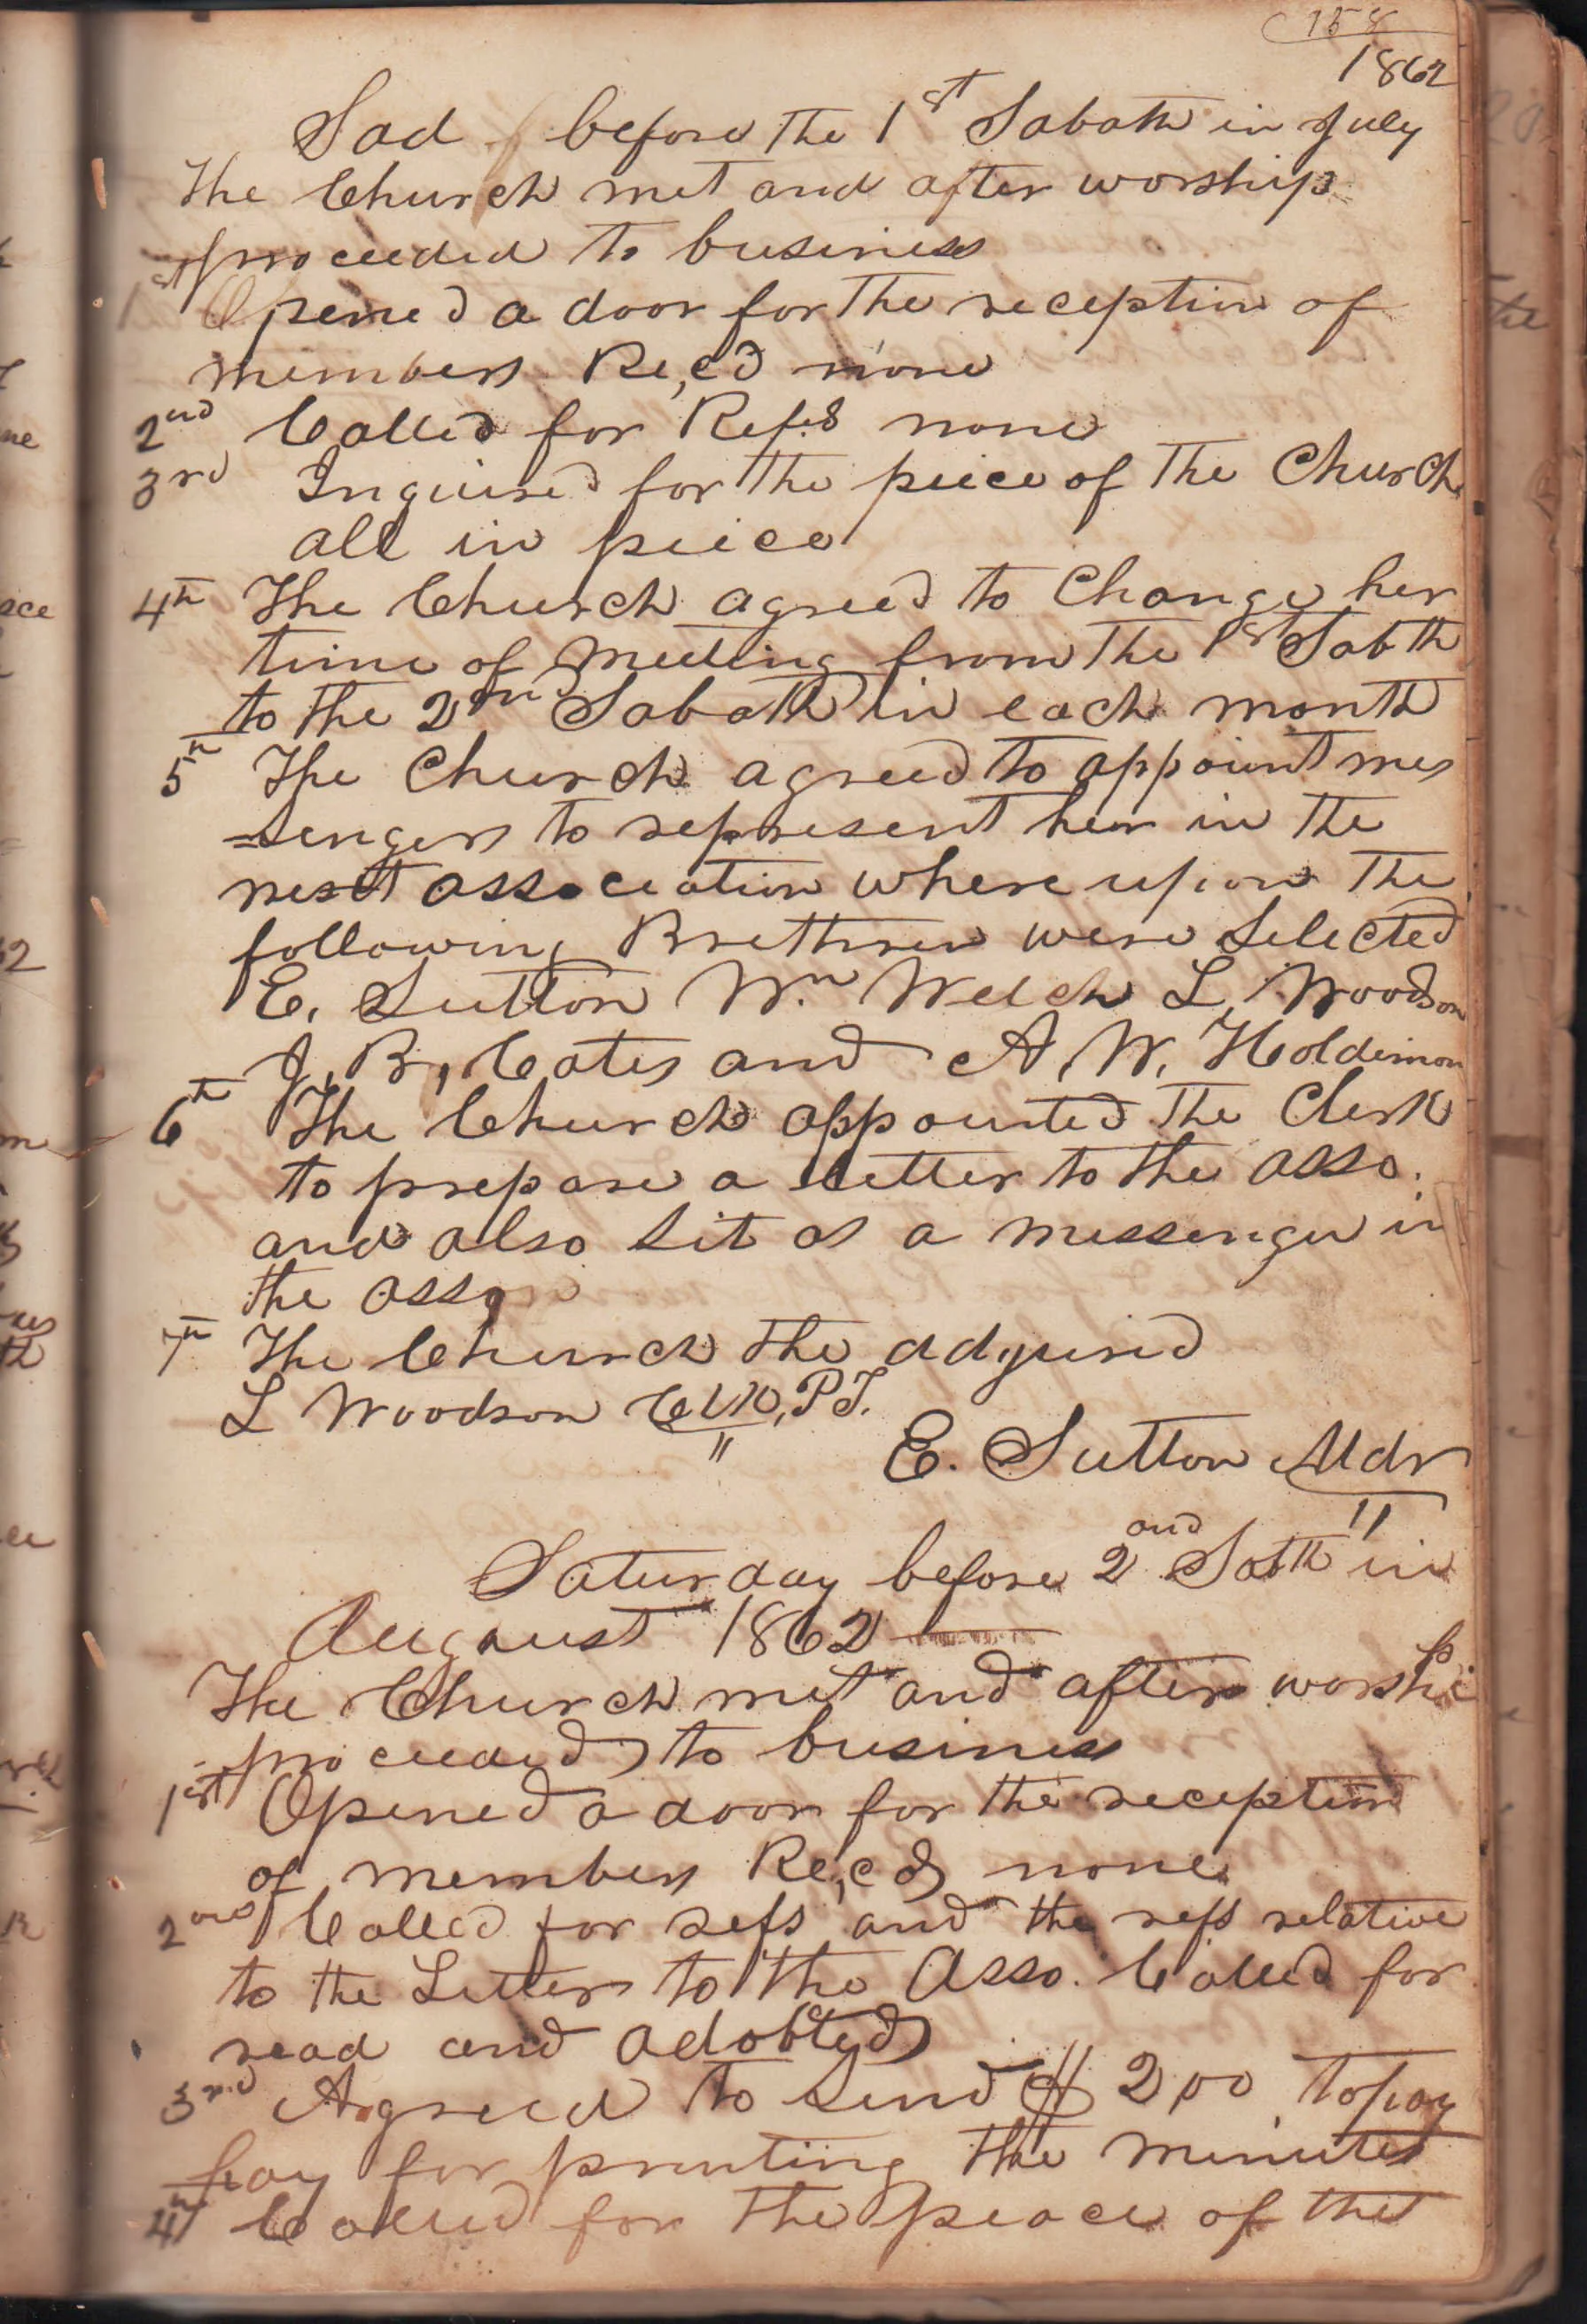 158
1862
Sad before the 1st Sabath in July
The Church met and after worship
proceeded to business
1st Opened a door for the reception of
members Re,cd none
2nd Called for Refs none
3rd Inquired for the peice of the Church
all in peice
4th The Church agreed to Change her
time of Meeting from the 1st Sabth
to the 2nd Sabath in each month
5th The Church agreed to appoint mes
=sengers to represent her in the
next association where upon the
following Brethren were Selected
E. Sutton Wm Welch L, Woodson
J, B, Cates and A, W. Holdimon
6th The Church appointed the Clerk
to prepare a letter to the asso.
and also sit as a messenger in
the asso
7th The Church the adjuried
L Woodson Clk, P T.
E. Sutton Mdr
Saturday before 2nd Sabth in
August 1862
The Church met and after worship
proceeded to business
1st Opened a door for the reception
of members Re,cd none
2nd Called for refs and the refs relative
to the Letter to the Asso. Called for
read and adobted
3rd Agreed to send $ 2,00 to pay
pay for prenting the minutes
4th Called for the peace of the